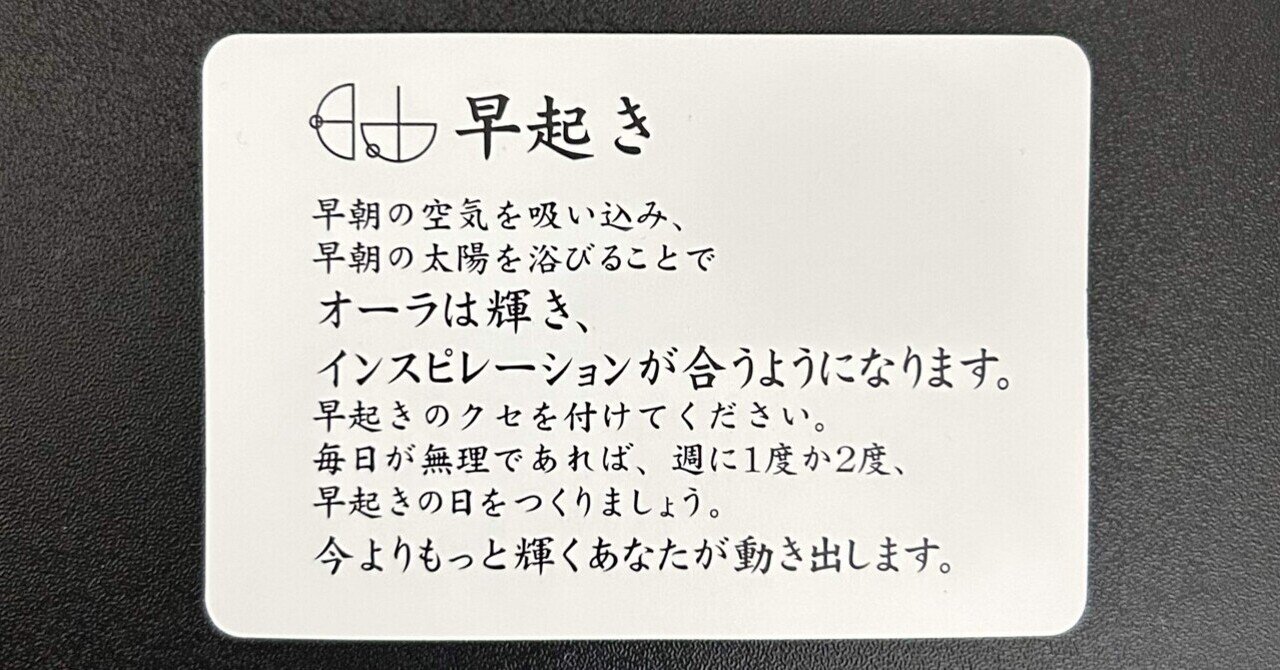 早起き
早朝の空気を吸い込み、
早朝の太陽を浴びることで
オーラは輝き、
インスピレーションが合うようになります。
早起きのクセを付けてください。
毎日が無理であれば、週に1度か2度、
早起きの日をつくりましょう。
今よりもっと輝くあなたが動き出します。